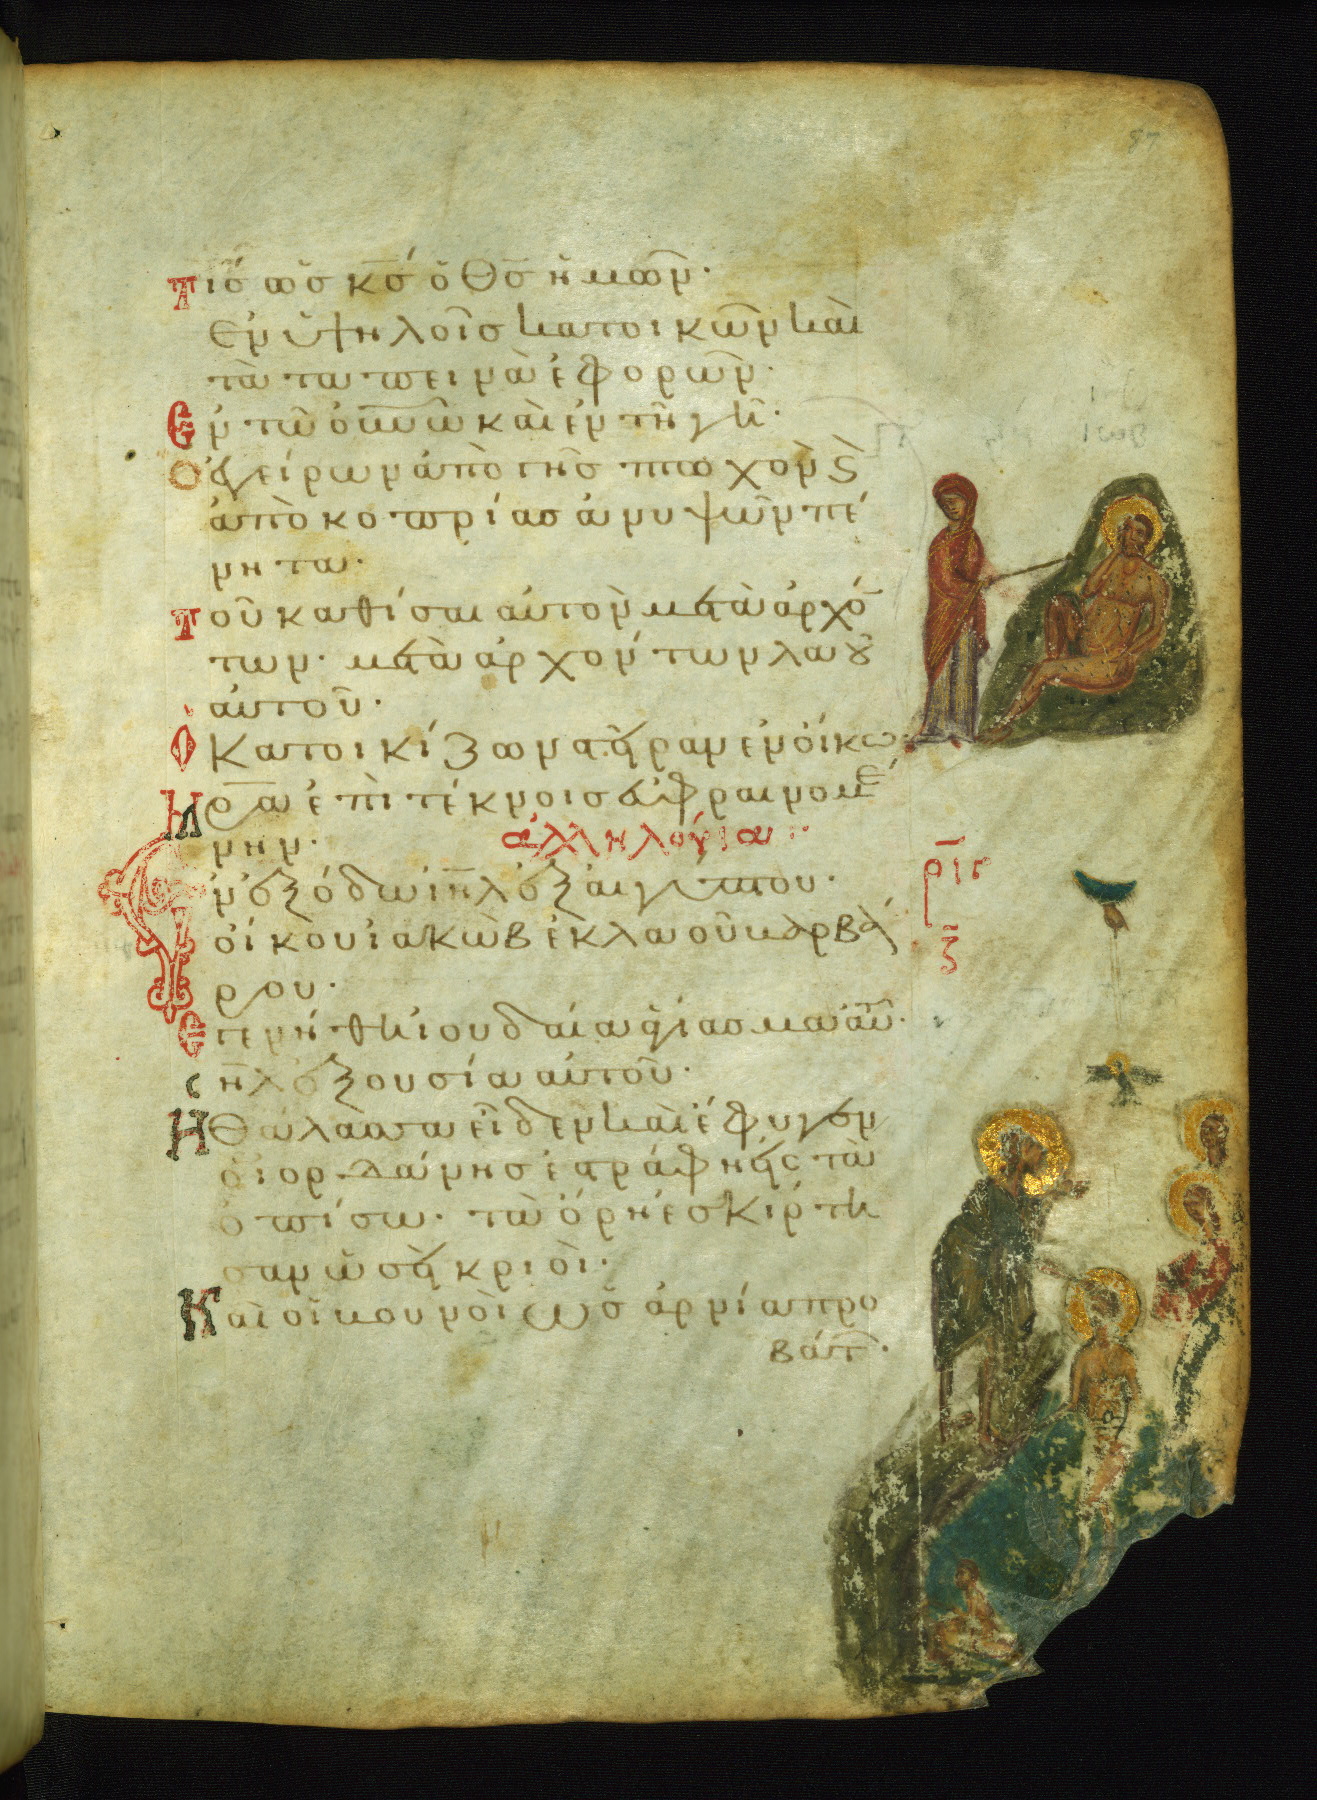 87
Τίσ ὡσ κ̅σ ὁ Θ̅σ ἡμῶν·
Ἐν ὑψηλοῖσ κατοικῶν καὶ
τὰ ταπεινὰ ἐφορῶν·
Ἐν τῶ ο̅υ̅ν̅ῶ καὶ ἐν τῆ γῆ·
Ὁ ἐγείρων ἀπὸ γῆσ πτωχὸν ϗ
ἀπὸ κοπρίασ ἀνυψῶν πέ
νητα·
Τοῦ καθίσαι αὐτὸν μετὰ ἀρχό
των· μετὰ ἀρχόντων λαοῦ
αὐτοῦ·
Ὁ κατοικίζων στεῖραν ἐν οἴκω·
Μ̅ρ̅α ἐπὶ τέκνοισ εὐφραινομέ
νην· ἀλληλούϊα
Ἐν ἐξόδω ι̅η̅λ ἐξ αἰγύπτου·
οἴκου ἰακὼβ ἐκ λαοῦ βαρβά
ρου·
ρ̅ι̅γ
ξ̅
Ἐγενήθη ἰουδαία ἁγίασμα αὐτοῦ·
ι̅η̅λ ἐξουσία αὐτοῦ·
Ἡ Θάλασσα εἶδεν καὶ ἔφυγεν
ὁ ἰορδάνησ ἐστράφη εἰς τὰ
ὀπίσω· τὰ ὄρη ἐσκίρτη
σαν ὡσεὶ κριοὶ·
Καὶ οἱ βουνοὶ ὡσ ἀρνία προ
βάτων·